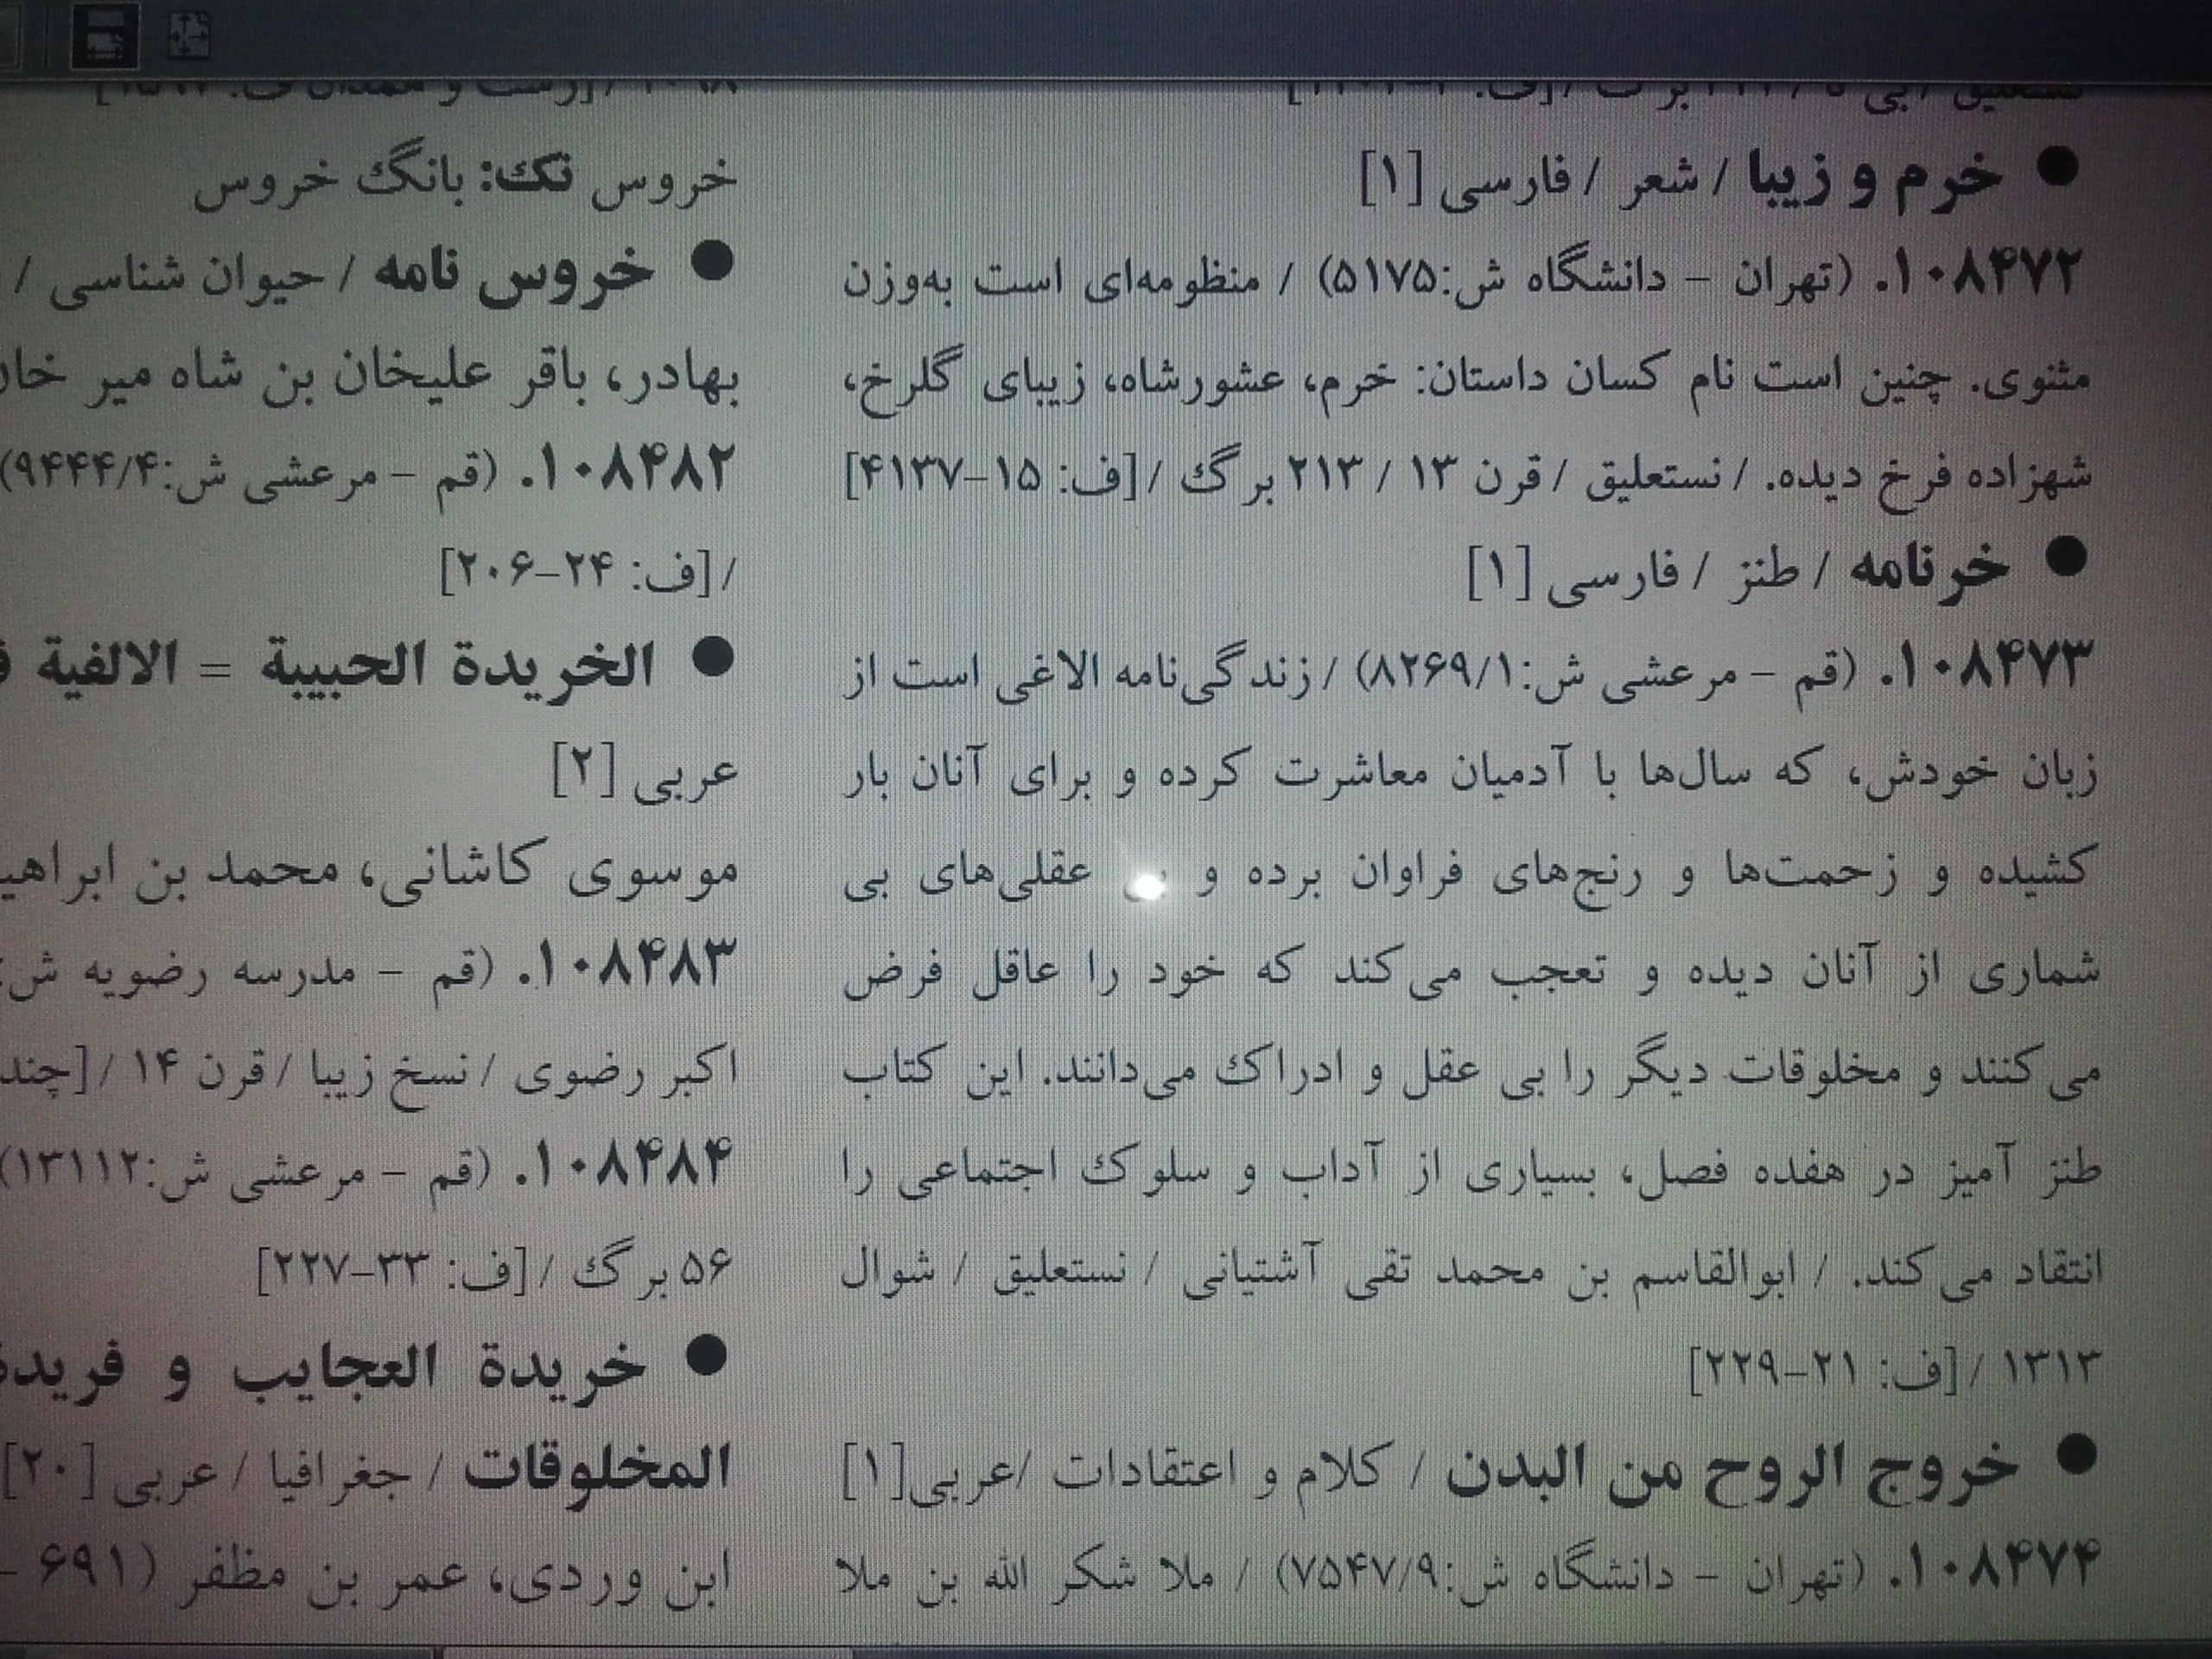 ● خرم و زیبا / شعر / فارسی [۱]
۱۰۸۴۷۲. (تهران - دانشگاه ش:۵۱۷۵) / منظومه‌ای است به‌وزن
مثنوی. چنین است نام کسان داستان: خرم، عشورشاه، زیبای گلرخ،
شهزاده فرخ دیده. / نستعلیق / قرن ۱۳ / ۲۱۳ برگ / [ف: ۱۵-۴۱۳۷]
● خرنامه / طنز / فارسی [۱]
۱۰۸۴۷۳. (قم - مرعشی ش:۸۲۶۹/۱) / زندگی‌نامه الاغی است از
زبان خودش، که سال‌ها با آدمیان معاشرت کرده و برای آنان بار
کشیده و زحمت‌ها و رنج‌های فراوان برده و بی عقلی‌های بی
شماری از آنان دیده و تعجب می‌کند که خود را عاقل فرض
می‌کنند و مخلوقات دیگر را بی عقل و ادراک می‌دانند. این کتاب
طنز آمیز در هفده فصل، بسیاری از آداب و سلوک اجتماعی را
انتقاد می‌کند. / ابوالقاسم بن محمد تقی آشتیانی / نستعلیق / شوال
۱۳۱۳ / [ف: ۲۱-۲۲۹]
● خروج الروح من البدن / کلام و اعتقادات /عربی[۱]
۱۰۸۴۷۴. (تهران - دانشگاه ش:۷۵۴۷/۹) / ملا شکر الله بن ملا
خروس تک: بانگ خروس
● خروس نامه / حیوان شناسی /
بهادر، باقر علیخان بن شاه میر خان
۱۰۸۴۸۲. (قم - مرعشی ش:۹۴۴۴/۴)
/ [ف: ۲۴-۲۰۶]
● الخریدة الحبیبة = الالفیة
عربی [۲]
موسوی کاشانی، محمد بن
۱۰۸۴۸۳. (قم - مدرسه رضویه ش:
اکبر رضوی / نسخ زیبا / قرن ۱۴ / [چند
۱۰۸۴۸۴. (قم - مرعشی ش:۱۳۱۱۲)
۵۶ برگ / [ف: ۳۳-۲۲۷]
● خریدة العجایب و فریدة
المخلوقات / جغرافیا / عربی [۲۰]
ابن وردی، عمر بن مظفر (۶۹۱ -